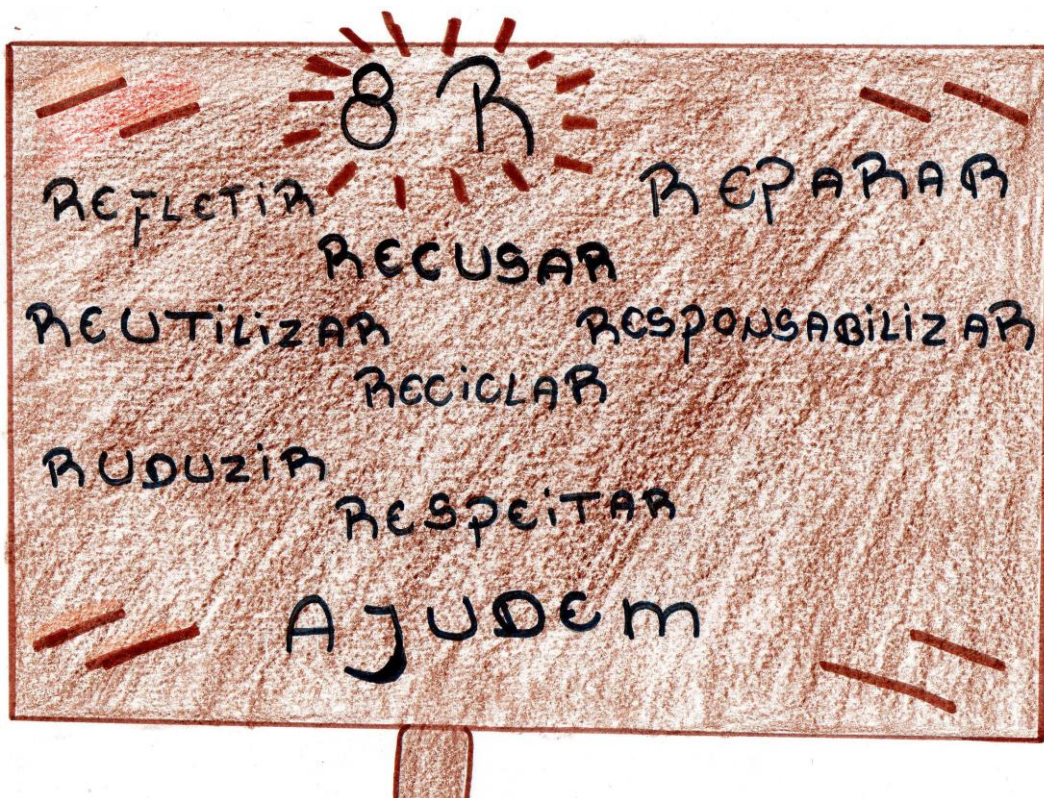 8 R
REFLETIR
REPARAR
RECUSAR
REUTILIZAR
RESPONSABILIZAR
RECICLAR
RUDUZIR
RESPEITAR
AJUDEM